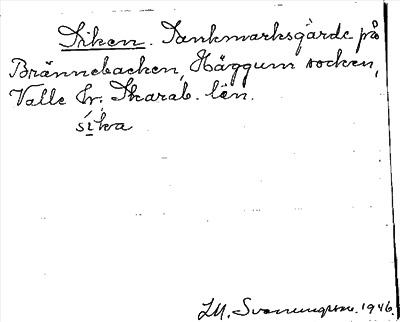 Siken. Sankmarksgärde på
Brännebacken, Häggum socken,
Valle hr. Skarab. län.
síka
I.M. Svenungsson. 1946.